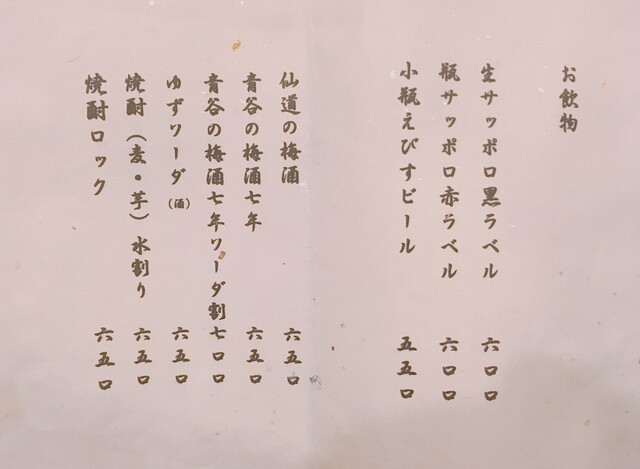 お飲物
生サッポロ黒ラベル 六〇〇
瓶サッポロ赤ラベル 六〇〇
小瓶えびすビール 五五〇
仙道の梅酒 六五〇
青谷の梅酒七年 六五〇
青谷の梅酒七年ソーダ割 七〇〇
ゆずソーダ(酒) 六五〇
焼酎(麦・芋)水割り 六五〇
焼酎ロック 六五〇